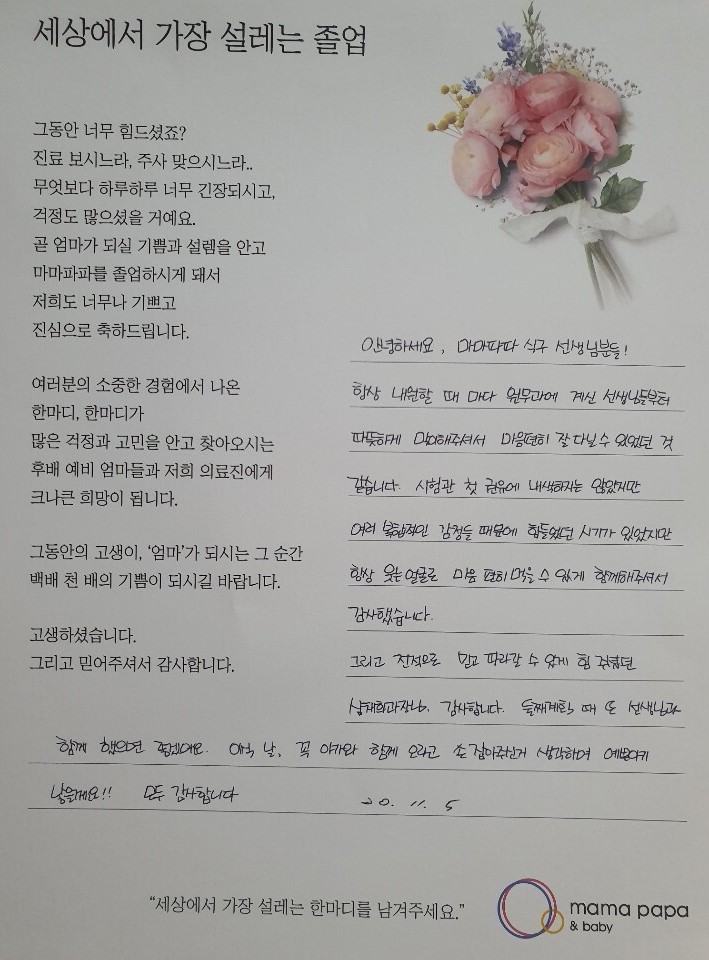 세상에서 가장 설레는 졸업
그동안 너무 힘드셨죠?
진료 보시느라, 주사 맞으시느라..
무엇보다 하루하루 너무 긴장되시고,
걱정도 많으셨을 거예요.
곧 엄마가 되실 기쁨과 설렘을 안고
마마파파를 졸업하시게 돼서
저희도 너무나 기쁘고
진심으로 축하드립니다.
여러분의 소중한 경험에서 나온
한마디, 한마디가
많은 걱정과 고민을 안고 찾아오시는
후배 예비 엄마들과 저희 의료진에게
크나큰 희망이 됩니다.
그동안의 고생이, '엄마'가 되시는 그 순간
백배 천 배의 기쁨이 되시길 바랍니다.
고생하셨습니다.
그리고 믿어주셔서 감사합니다.
안녕하세요, 마마파파 식구 선생님분들!
항상 내원할 때 마다 원무과에 계신 선생님들부터
따뜻하게 맞이해주셔서 마음편히 잘 다닐 수 있었던 것
같습니다. 시험관 첫 유에 내색하지는 않았지만
여러 복합적인 감정들 때문에 힘들었던 시기가 있었지만
항상 웃는 얼굴로 마음 편히 먹을 수 있게 함께해주셔서
감사했습니다.
그리고 전적으로 믿고 따라갈 수 있게 힘 줬던
과장님. 감사합니다. 둘째계획 때 또 선생님과
함께 했으면 해요. 날, 꼭 아가와 함께 오라고 손 잡아주신거 생각하며 예쁘게
낳을게요!! 모두 감사합니다
20. 11. 5
"세상에서 가장 설레는 한마디를 남겨주세요."
mama papa
& baby